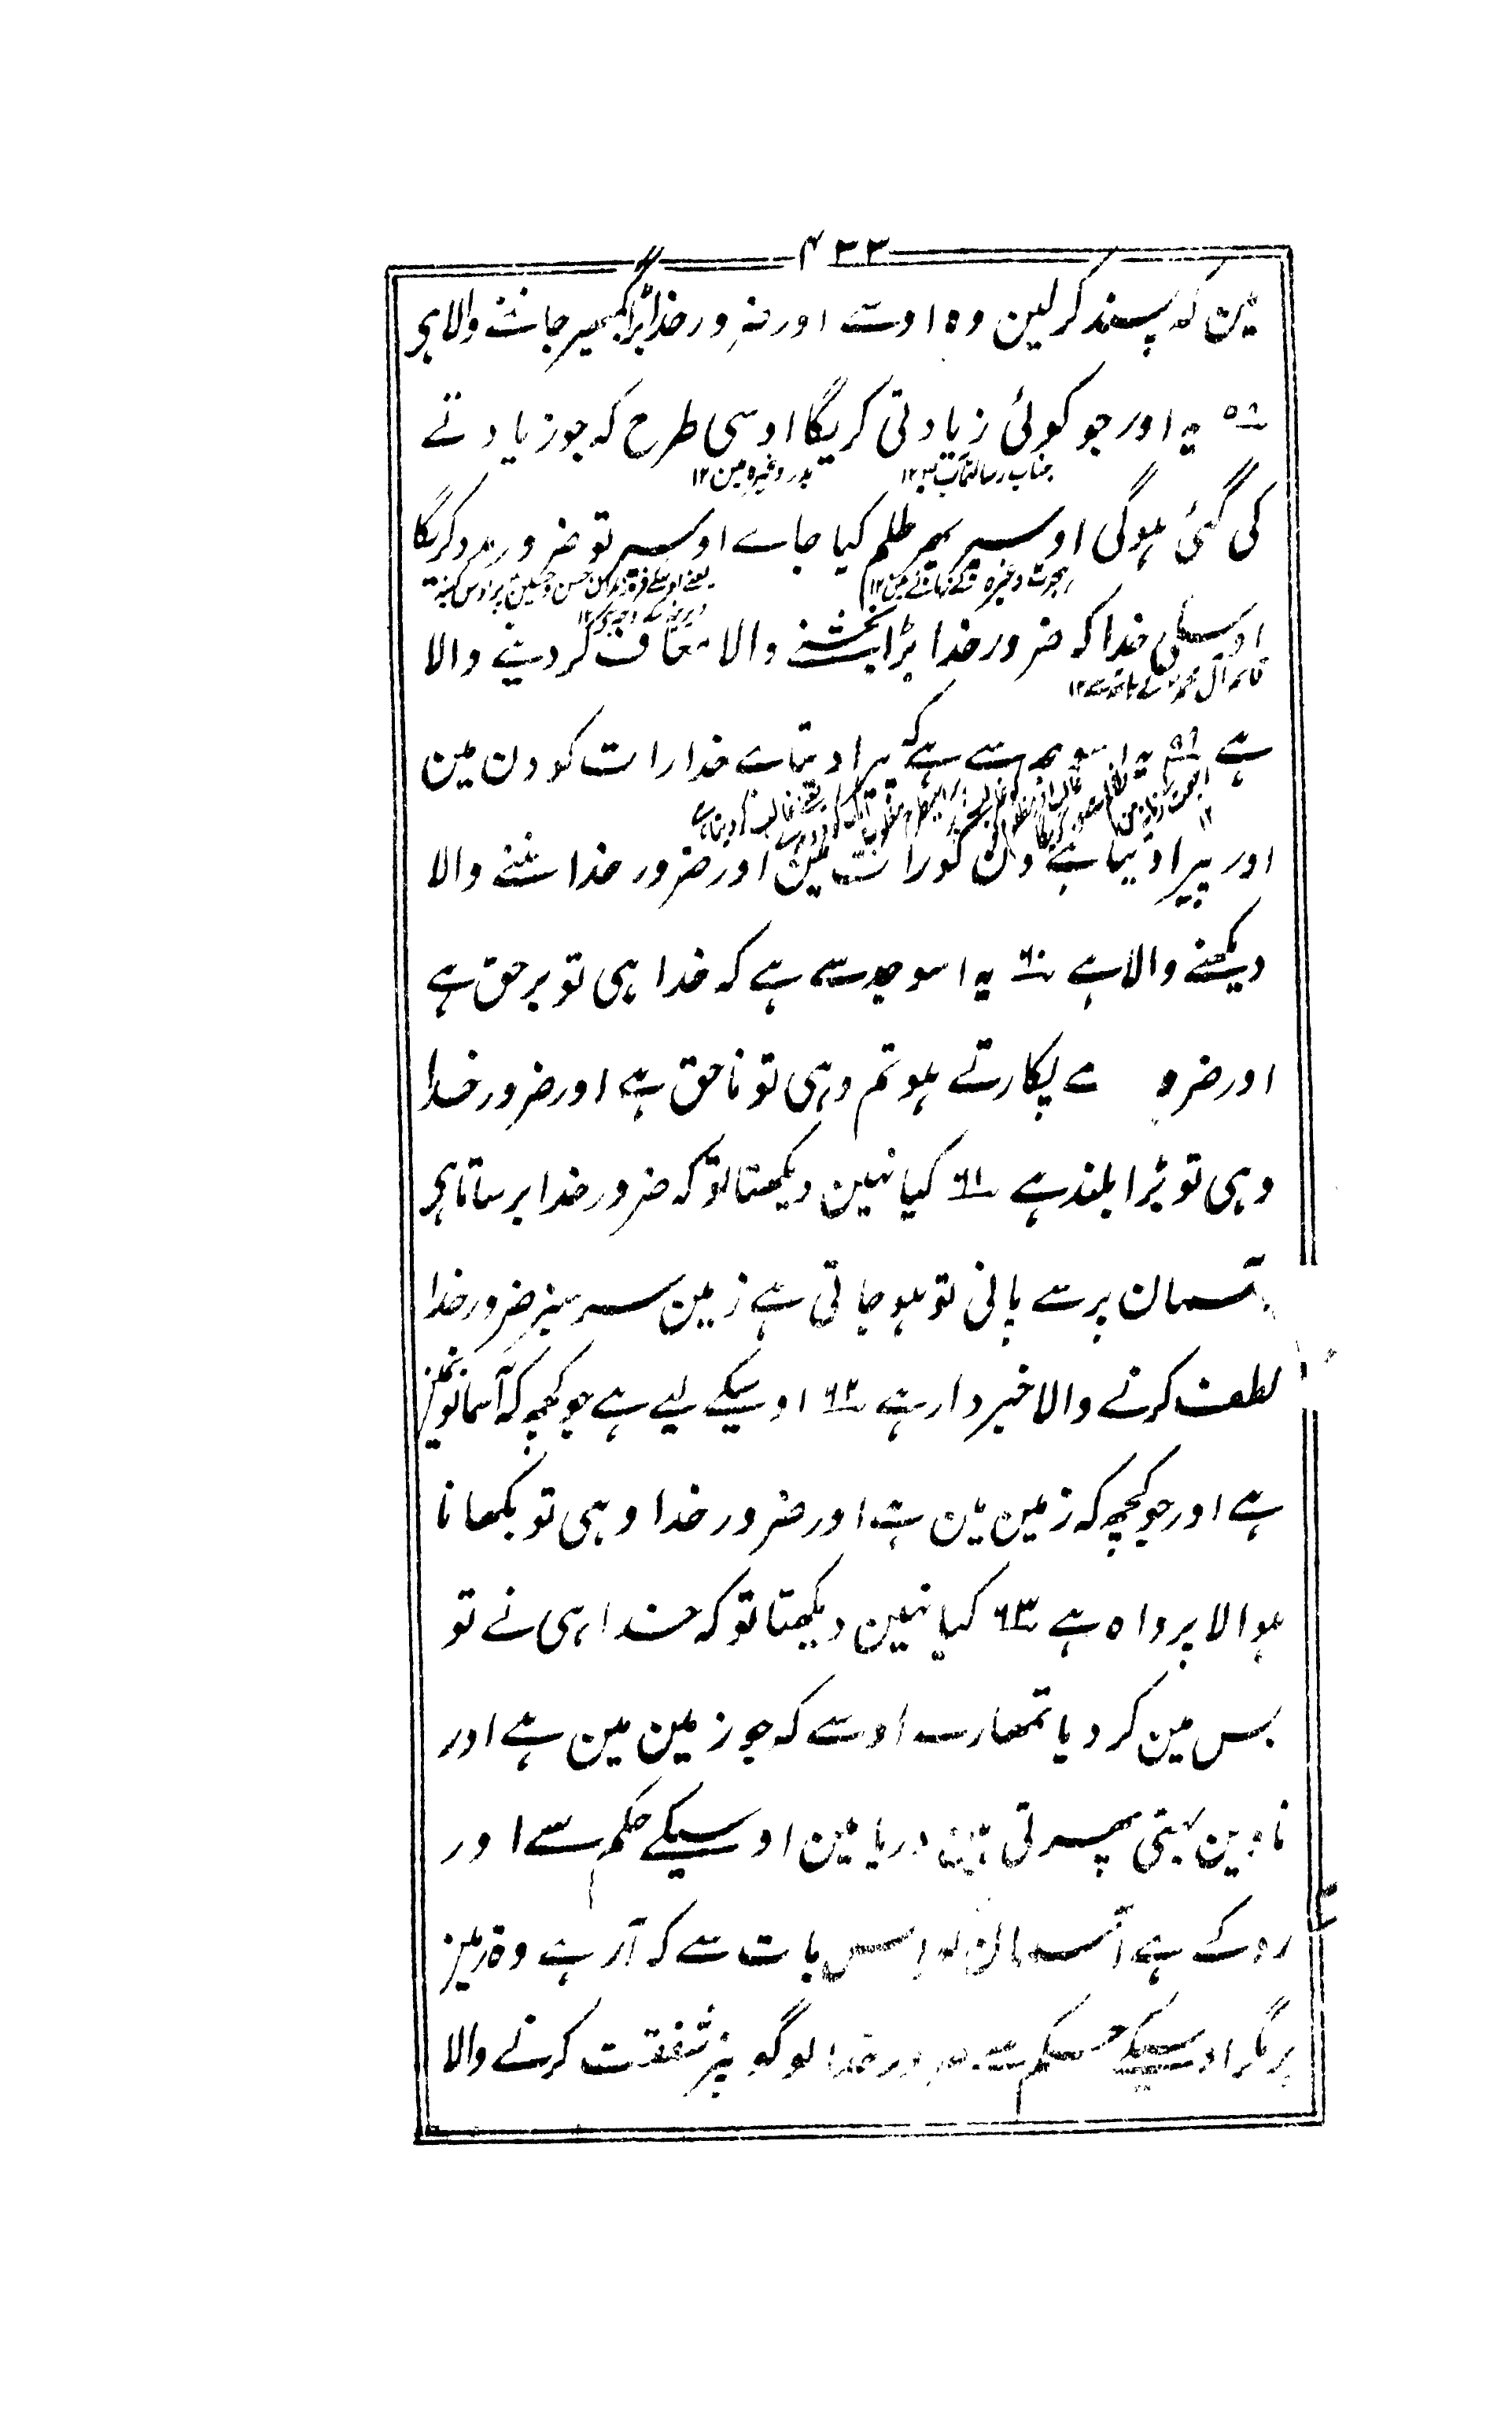 ۴۳۳
مین کہ پسند کرلین وہ اوسے اور ضرور خدا بڑا گمبھیر جاننے والا ہی
۵۸ یہ اور جو کوئی زیادتی کریگا اوسی طرح کہ جو زیادتے
جناب رسالتمآب ۱۲ بدر وغیرہ مین ۱۲
کی گئی ہوگی اوسپر پھر ظلم کیا جاے اوسپر تو ضرور مدد کریگا
ہجرت وغیرہ کے زمانے مین ۱۲ یعنے اوسکے فرزند حسن وحسین پر اوس کینہ
دیرینہ کے وجہ ۱۲
اوسکی خدا کہ ضرور خدا بڑا بخشنے والا معاف کردینے والا
قائم آل محمد کے ہاتھ سے ۱۲
ہے ۵۹ یہ اسوجہ سے ہے کہ پیرا دیتا ہے خدا رات کو دن مین
اور پیرا دیتا ہے دن کو رات مین اور ضرور خدا سننے والا
دیکھنے والا ہے ۶۰ یہ اسوجہ سے ہے کہ خدا ہی تو برحق ہے
اور ضرو سے پکارتے ہو تم وہی تو ناحق ہے اور ضرور خدا
وہی تو بڑا بلند ہے ۶۱ کیا نہین دیکھتا تو کہ ضرور خدا برساتا ہی
آسمان پر سے پانی تو ہوجاتی ہے زمین سرسبز ضرور خدا
لطف کرنے والا خبردار ہے ۶۲ اوسیکے لیے ہے جو کچھ کہ آسمانونمین
ہے اور جو کچھ کہ زمین مین ہے اور ضرور خدا وہی تو بکھانا
ہوا لا پرواہ ہے ۶۳ کیا نہین دیکھتا تو کہ خدا ہی نے تو
بس مین کردیا تمھارے اوسے کہ جو زمین مین ہے اور
ناوین بہتی پھرتی ہین دریا مین اوسیکے حکم سے اور
روکے ہے آسمان کو اس بات سے کہ آرہے وہ زمین
پر مگر اوسیکے حکم سے ضرور خدا لوگونپر شفقت کرنے والا